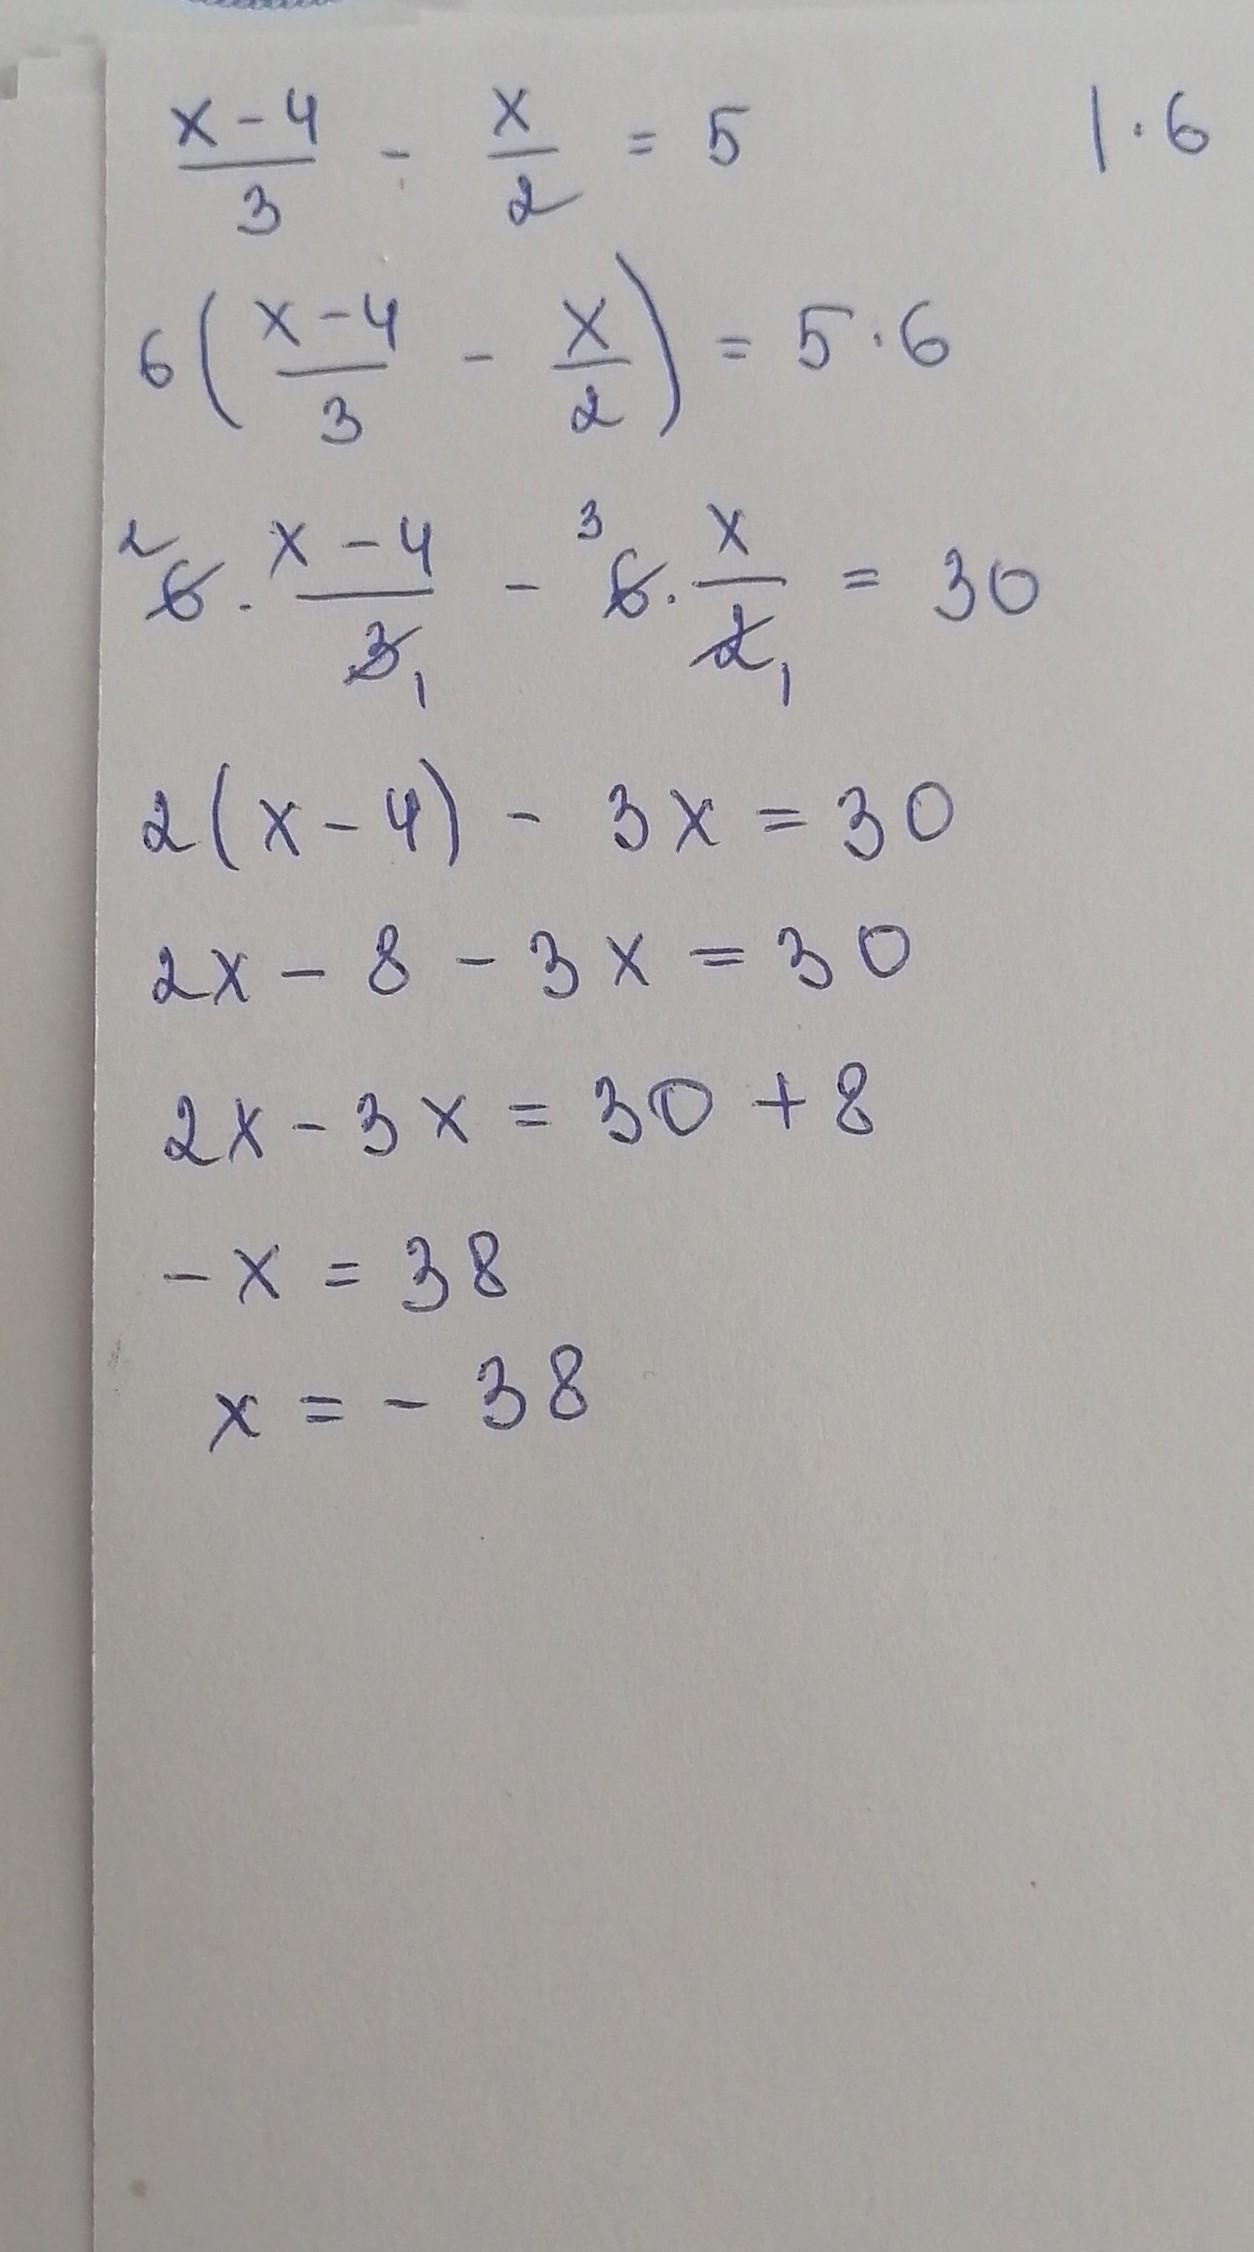 x-4/3 - x/2 = 5 |·6
6(x-4/3 - x/2) = 5·6
2 6·x-4/3 1 - 3 6·x/2 1 = 30
2(x-4) - 3x = 30
2x - 8 - 3x = 30
2x - 3x = 30 + 8
-x = 38
x = - 38